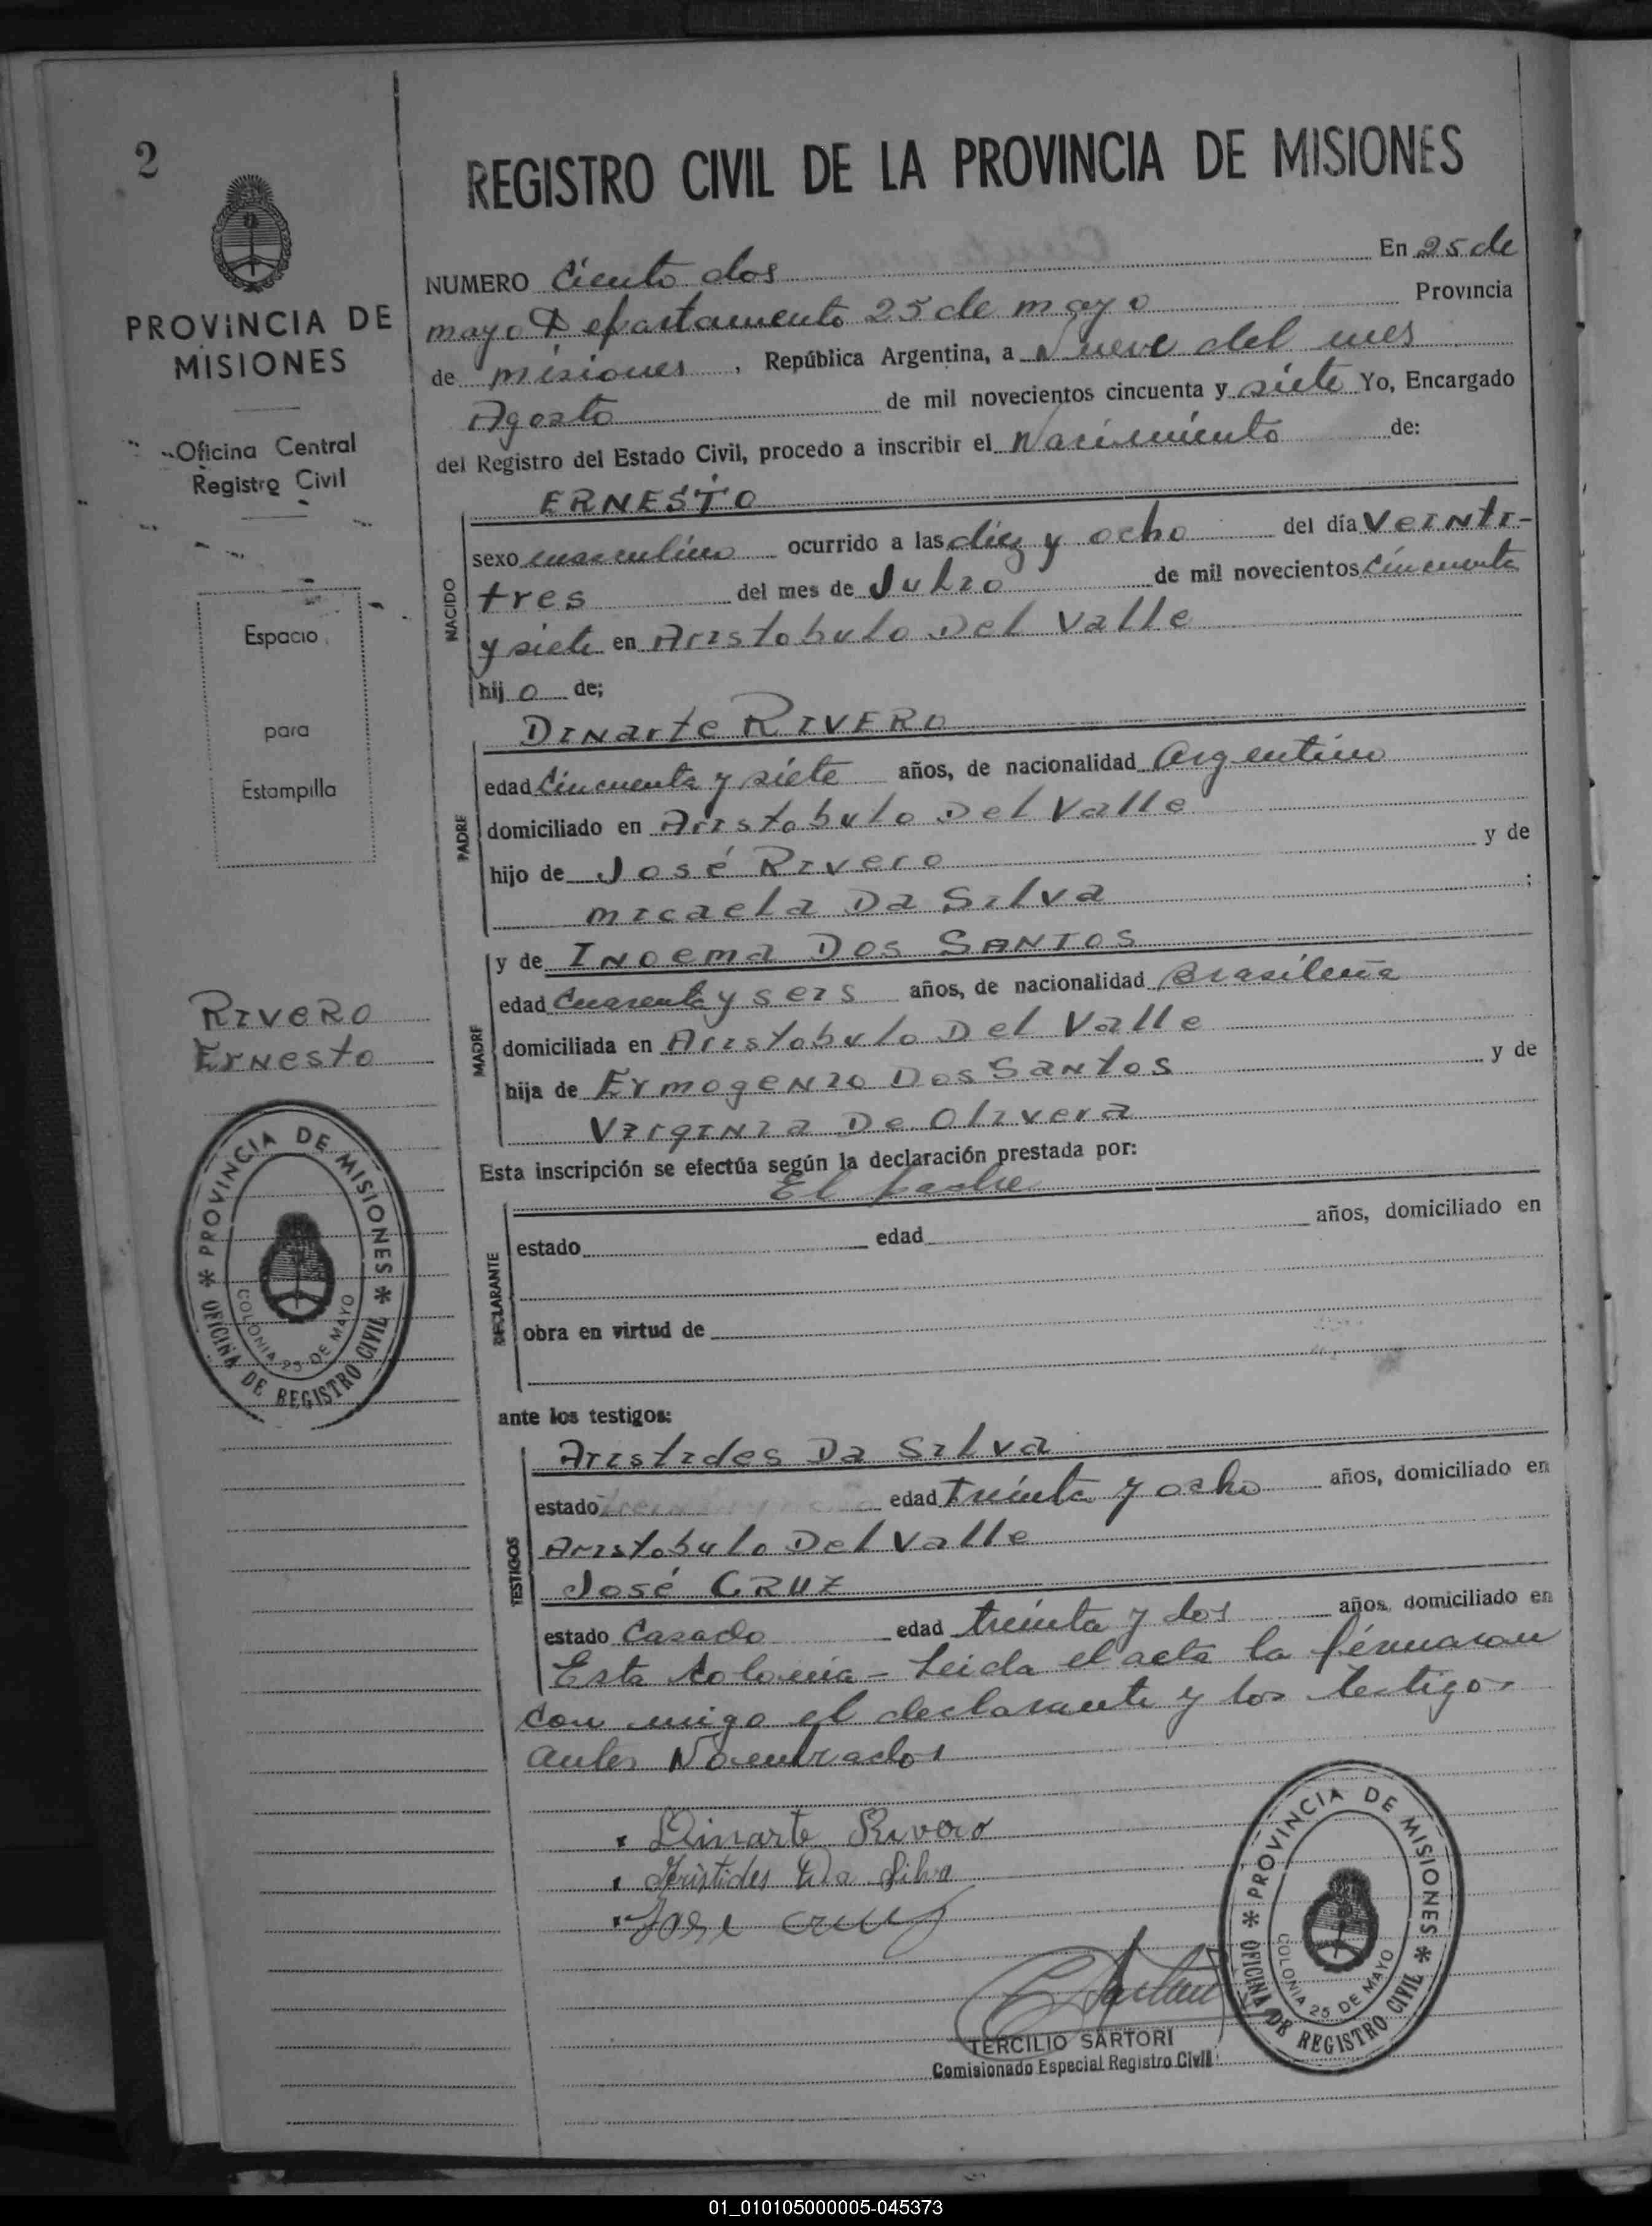 2
REGISTRO CIVIL DE LA PROVINCIA DE MISIONES
PROVINCIA DE
MISIONES
Oficina Central
Registro Civil
Espacio
para
Estampilla
NUMERO Ciento dos En 25 de
mayo Departamento 25 de mayo Provincia
de misiones, República Argentina, a Nueve del mes
Agosto de mil novecientos cincuenta y siete Yo, Encargado
del Registro del Estado Civil, procedo a inscribir el Nacimiento de:
NACIDO
ERNESTO
sexo masculino ocurrido a las diez y ocho del día Veinti-
tres del mes de Julio de mil novecientos Cincuenta
y siete en Aristobulo Del Valle
hijo de;
PADRE
Dinarte RIVERO
edad Cincuenta y siete años, de nacionalidad Argentino
domiciliado en Aristobulo Del Valle
hijo de José Rivero y de
micaela Da Silva ;
MADRE
y de INOema Dos SANTOS
edad Cuarenta y seis años, de nacionalidad Brasileña
domiciliada en Aristobulo Del Valle
hija de Ermogenio Dos Santos y de
Virginia De Olivera
RIVERO
Ernesto
Esta inscripción se efectúa según la declaración prestada por:
El padre
DECLARANTE
estado edad años, domiciliado en
obra en virtud de
PROVINCIA DE MISIONES
COLONIA 25 DE MAYO
OFICINA DE REGISTRO CIVIL
ante los testigos:
TESTIGOS
Aristides Da Silva
estado edad Treinta y ocho años, domiciliado en
Aristobulo Del Valle
José CRUZ
estado Casado edad treinta y dos años, domiciliado en
Esta Colonia - Leida el acta la firmaron
con migo el declarante y los testigos
antes Nombrados
Dinarte Rivero
Aristides Da Silva
Jose Cruz
TERCILIO SARTORI
Comisionado Especial Registro Civil
PROVINCIA DE MISIONES
COLONIA 25 DE MAYO
OFICINA DE REGISTRO CIVIL
01_010105000005-045373